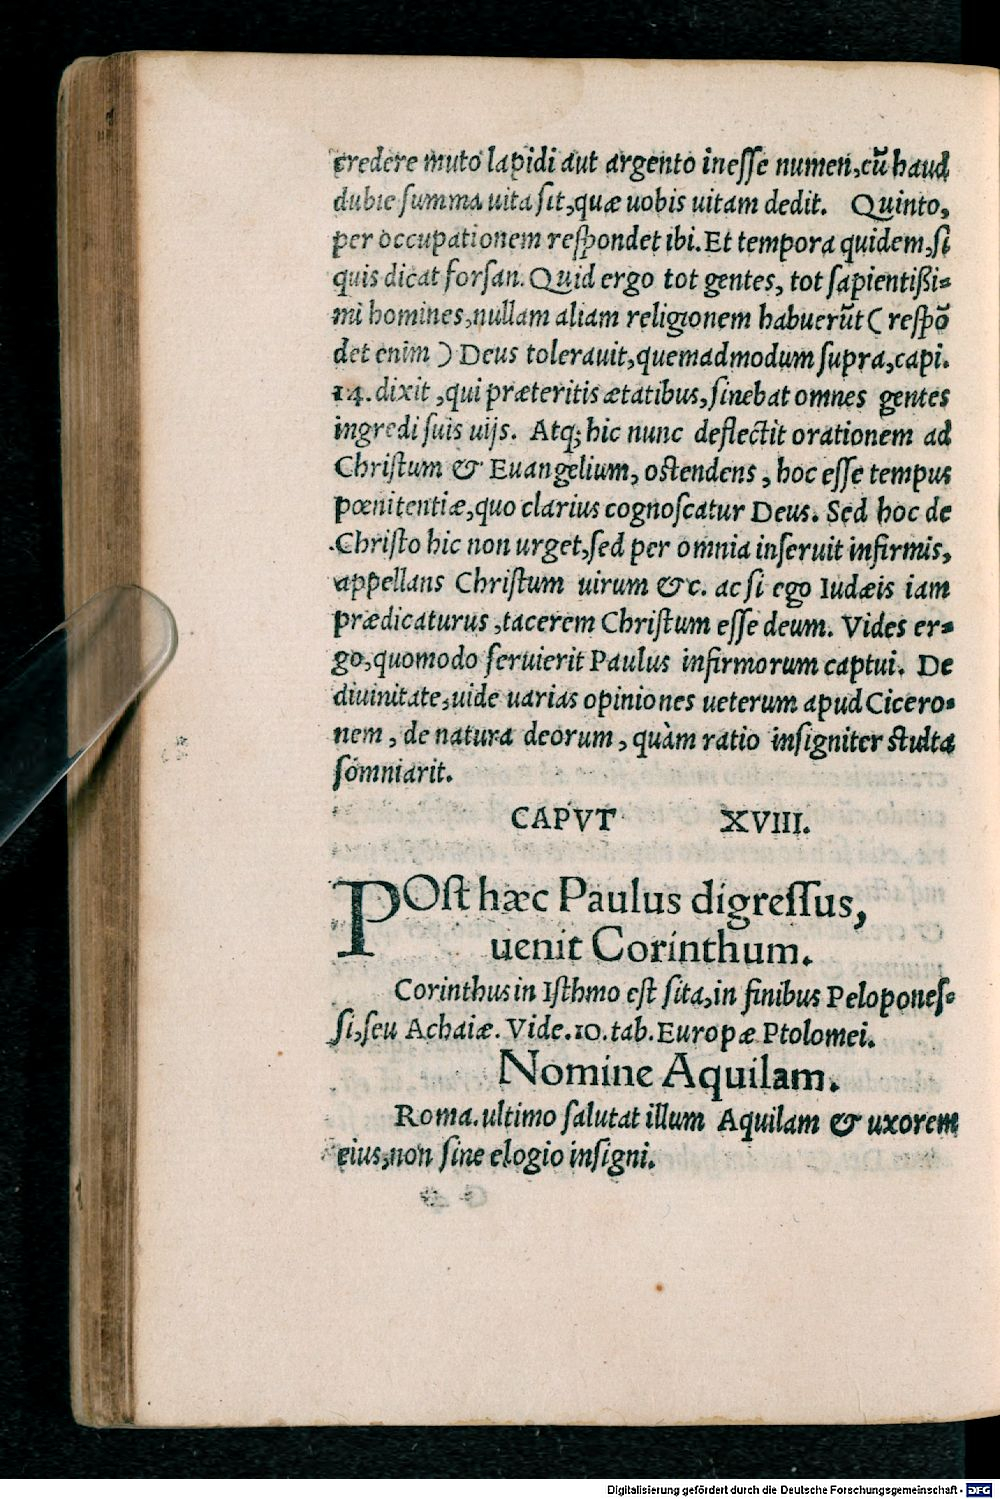 credere muto lapidi aut argento inesse numen, cũ haud
dubie summa uita sit, quæ uobis uitam dedit. Quinto,
per occupationem respondet ibi. Et tempora quidem, si
quis dicat forsan. Quid ergo tot gentes, tot sapientißi-
mi homines, nullam aliam religionem habuerũt ( respõ
det enim ) Deus tolerauit, quemadmodum supra, capi.
14. dixit, qui præteritis ætatibus, sinebat omnes gentes
ingredi suis uijs. Atq; hic nunc deflectit orationem ad
Christum & Euangelium, ostendens, hoc esse tempus
pœnitentiæ, quo clarius cognoscatur Deus. Sed hoc de
Christo hic non urget, sed per omnia inseruit infirmis,
appellans Christum uirum &c. ac si ego Iudæis iam
prædicaturus, tacerem Christum esse deum. Vides er-
go, quomodo seruierit Paulus infirmorum captui. De
diuinitate, uide uarias opiniones ueterum apud Cicero-
nem, de natura deorum, quàm ratio insigniter stulta
somniarit.
CAPVT XVIII.
POst hæc Paulus digressus,
uenit Corinthum.
Corinthus in Isthmo est sita, in finibus Pelopones-
si, seu Achaiæ. Vide. 10. tab. Europæ Ptolomei.
Nomine Aquilam.
Roma. ultimo salutat illum Aquilam & uxorem
eius, non sine elogio insigni.
Digitalisierung gefördert durch die Deutsche Forschungsgemeinschaft - DFG